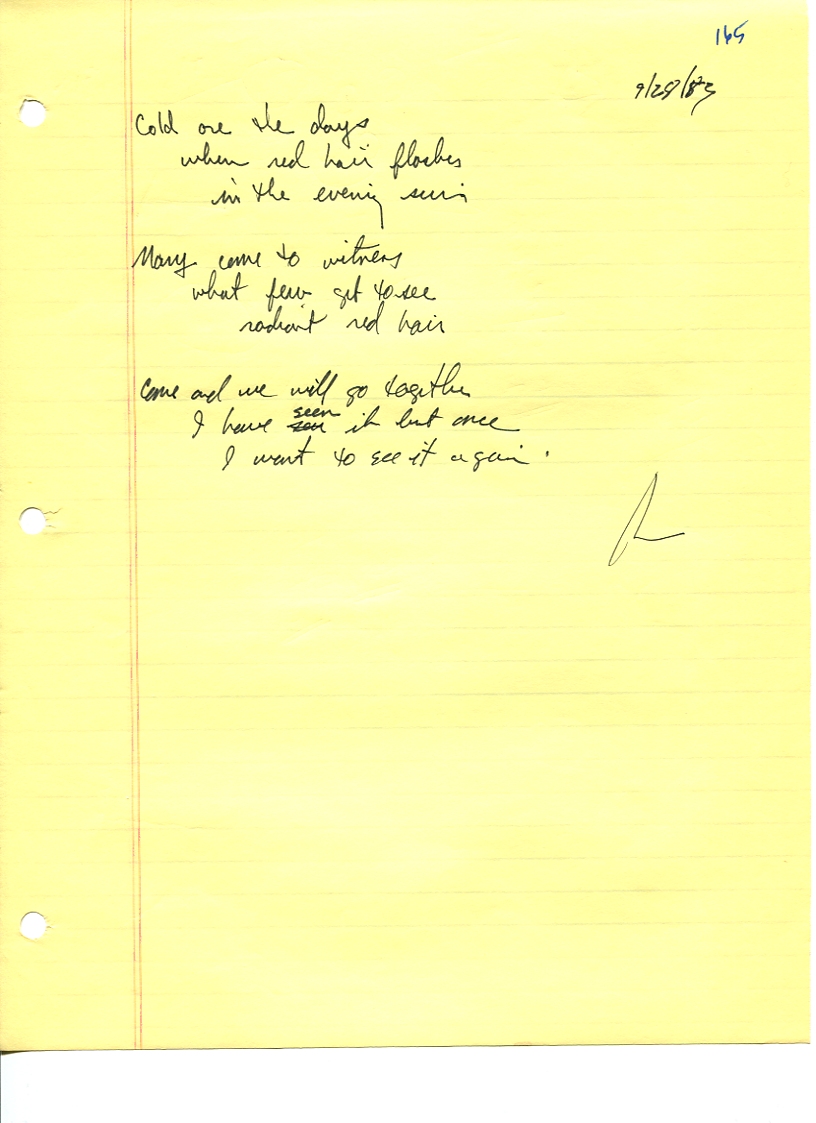 165
9/28/83
Cold are the days
when red hair flashes
in the evening sun
Many come to witness
what few get to see
radiant red hair
Come and we will go together
I have seen it but once
I want to see it again.